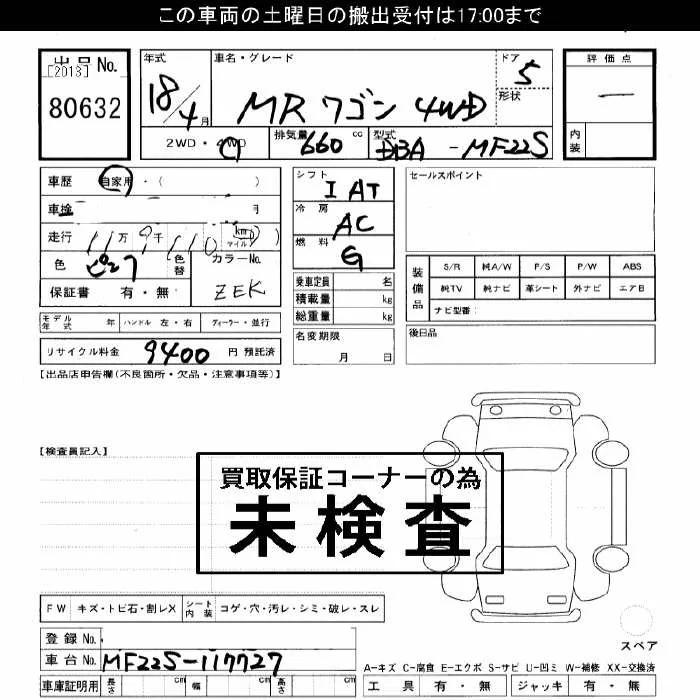 この車両の土曜日の搬出受付は17:00まで
出品 No.
[2013]
80632
年式
18/4月
車名・グレード
MR ワゴン 4WD
ドア
5
形状
評価点
—
内装
2WD・4WD
排気量
660 cc
型式
DBA - MF22S
車歴 自家用・( )
車検 月
走行 11万9千110 (km マイル)
色 ピンク
色替
カラーNo.
ZEK
保証書 有・無
シフト
I AT
冷房
AC
燃料
G
乗車定員 名
積載量 kg
総重量 kg
セールスポイント
装備品
S/R 純A/W P/S P/W ABS
純TV 純ナビ 革シート 外ナビ エアB
ナビ型番:
モデル年式 年 ハンドル 左・右 ディーラー・並行
名変期限
月 日
後日品
リサイクル料金 9400 円 預託済
【出品店申告欄(不良箇所・欠品・注意事項等)】
【検査員記入】
買取保証コーナーの為
未検査
FW キズ・トビ石・割レX シート内装 コゲ・穴・汚レ・シミ・破レ・スレ
スペア
登録 No.
車台 No. MF22S-117727
A-キズ C-腐食 E-エクボ S-サビ U-凹ミ W-補修 XX-交換済
車庫証明用 長さ cm 幅 cm 高さ cm
工具 有・無 ジャッキ 有・無